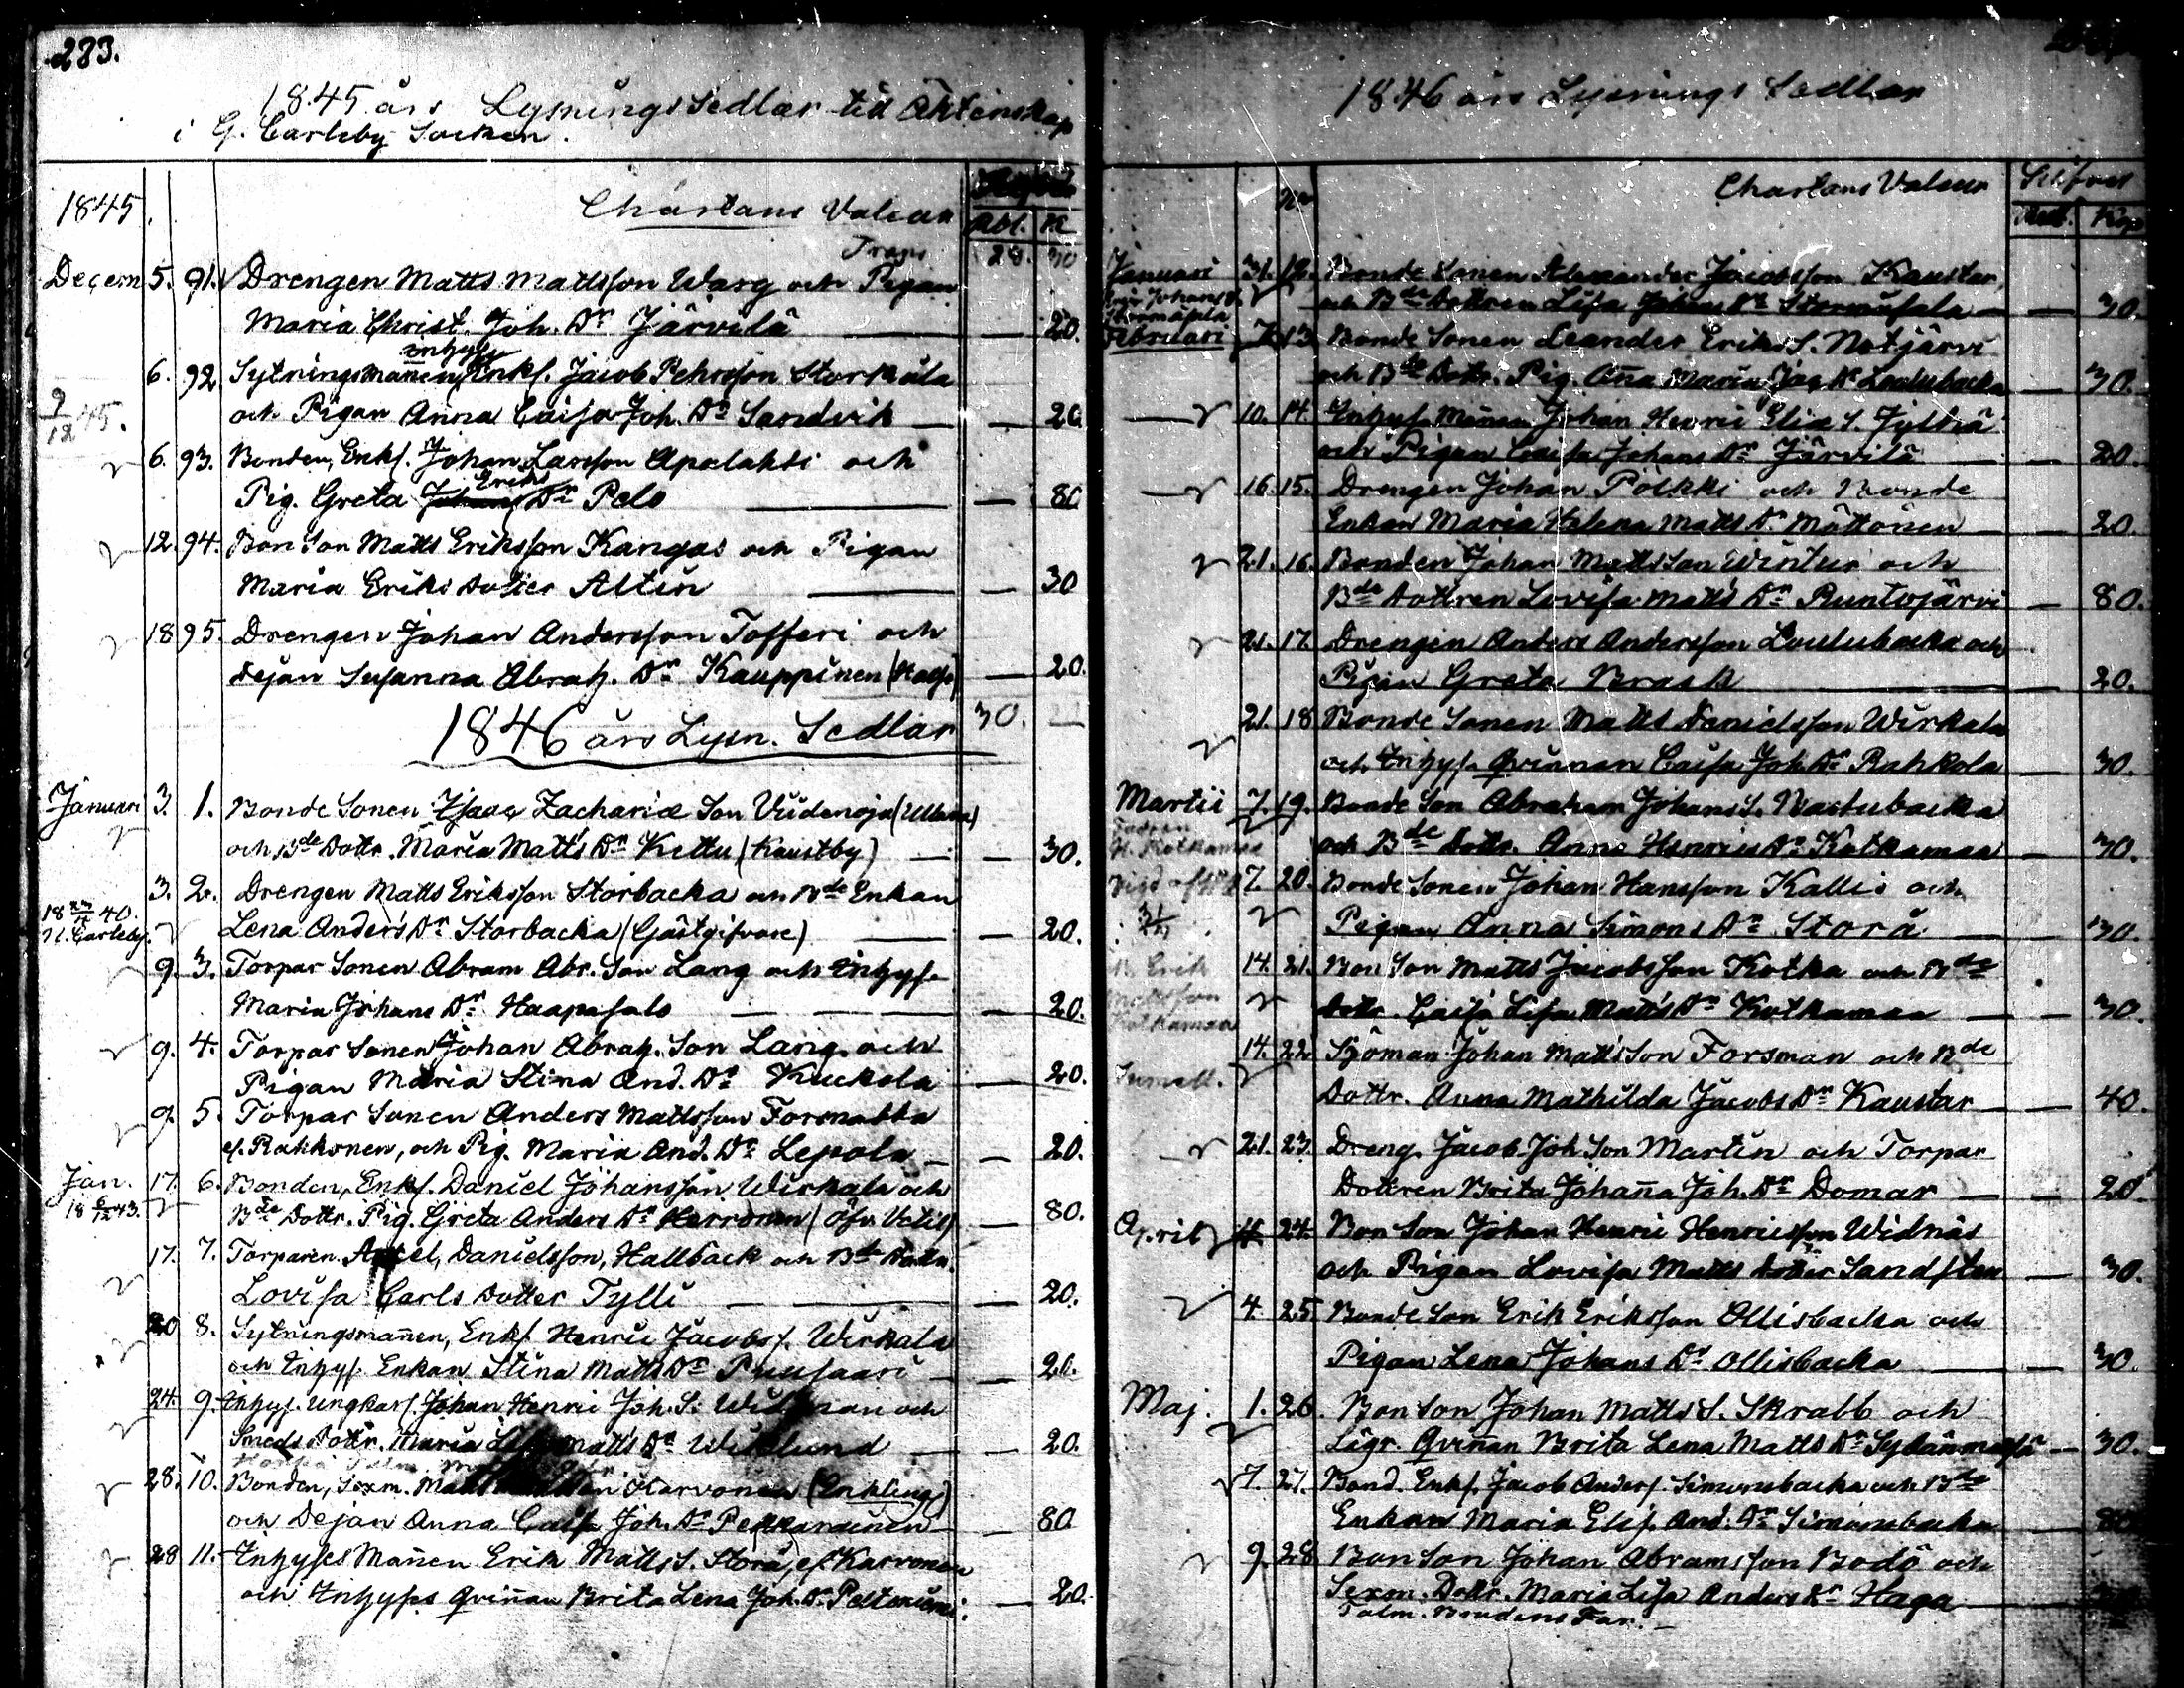 283.
1845 års Lysnings Sedlar till Äktenskap
i G. Carleby Socken.
1845. Chartans Valeur Rbl. K
Transp 28. 30
Decem 5. 91. Drengen Matts Mattsson Warg och Pigan
Maria Christ. Joh. Dr Järvilä — 20.
inhyses
6. 92 Sytningsmannen, Enkl. Jacob Pehrsson Storkåla
9/12 45. och Pigan Anna Caisa Joh. Dr Sandvik — 20
6. 93. Bonden, Enkl. Johan Larsson Apalahti och
Eriks
Pig. Greta Dr Pelo — 80
12. 94. Bon Son Matts Eriksson Kangas och Pigan
Maria Eriks Dotter Altin — 30
18 95. Drengen Johan Andersson Tofferi och
Dejan Susanna Abrah. Dr Kauppinen — 20.
1846 års Lysn. Sedlar 30. —
Januari 3. 1. Bonde Sonen Isaac Zachariæ Son Viidenoja
och Bde Dottr. Maria Matts Dr Kettu (Kaustby) — 30.
3. 2. Drengen Matts Eriksson Storbacka och Bde Enkan
N. Carleby. Lena Anders Dr Storbacka (Gästgifvare) — 20.
9. 3. Torpar Sonen Abram Abr. Son Lang och Inhyses
Maria Johans Dr Haapasalo — 20.
9. 4. Torpar Sonen Johan Abrah. Son Lang och
Pigan Maria Stina And. Dr Kuckola — 20.
9. 5. Torpar Sonen Anders Mattsson
el. Rahkonen, och Pig. Maria And. Dr Lepola — 20.
Jan. 17. 6. Bonden, Enkl. Daniel Johansson Wirkala och
18 6/12 43. Bde Dottr. Pig. Greta Anders Dr Herronen — 80.
17. 7. Torparen Axel, Danielsson, Hallbäck och Bde Dottr.
Lovisa Carls Dotter Tylli — 20.
20 8. Sytningsmannen, Enkl. Henric Jacobs s. Wirkala
och Inhys. Enkan Stina Matts Dr Puusaari — 20.
24. 9. Inhys. Ungkarl. Johan Henric Joh. S. och
Smeds Dottr. Maria Matts Dr — 20.
28. 10. Bonden, Sexm. (Enkling)
och Dejan Anna Caisa Joh. Dr — 80
28 11. Inhyses Mannen Erik Matts S. Storå, el. Karvonen
och Inhyses Qvinnan Brita Lena Joh. Dr Peltoniemi. — 20.
1846 års Lysnings Sedlar
No Chartans Valeur Silfver
Rub. Kop
Januari 31. 12. Bonde Sonen Alexander Jacobsson Kaustar
och Bde Dottren Lisa Johans Dr — 30.
Februari 7. 13 Bonde Sonen Leander Eriks S. Notjärvi
och Bde Dottr. Pig. Anna Maria Jac Dr Loulubacka — 30.
10. 14. Inhyses Mannen Johan Henric Eliæ S. Jylhä
och Pigan Caisa Johans Dr Järvilä — 20.
16. 15. Drengen Johan Pölkki och Bonde
Enkan Maria Helena Matts Dr Möttönen — 20.
21. 16. Bonden Johan Matts Son Winter och
Bde Dottren Lovisa Matts Dr Runtujärvi — 80.
21. 17. Drengen Anders Andersson Loulubacka och
Pigan Greta Brask — 20.
21. 18 Bonde Sonen Matts Danielsson Wirkala
och Inhyses Qvinnan Caisa Joh. Dr Rahkola — 30.
Martii 7. 19. Bonde Son Abraham Johans S.
och Bde Dottr. Anna Henrics Dr Kotkamaa — 30.
7. 20. Bonde Sonen Johan Hansson Kallis och
Pigan Anna Simons Dr Storå — 30.
14. 21. Bon Son Matts Jacobsson Kotka och Bde
Dottr. Caisa Lisa Matts Dr Kotkamaa — 30.
14. 22 Sjöman Johan Matts Son Forsman och Bde
Dottr. Anna Mathilda Jacobs Dr Kaustar — 40.
21. 23. Dreng. Jacob Joh Son Martin och Torpar
Dottren Brita Johanna Joh. Dr Domar — 20
April 4. 24. Bon Son Johan Henric Henricsson Widnäs
och Pigan Lovisa Matts Dotter Sandsten — 30.
4. 25. Bonde Son Erik Eriksson Ollisbacka och
Pigan Lena Johans Dr Ollisbacka — 30.
Maj. 1. 26. Bon Son Johan Matts S. Skrabb och
Lägr. Qvinnan Brita Lena Matts Dr — 30.
7. 27. Bond. Enkl. Jacob Anders s. Simonsbacka och Bde
Enkan Maria Elis. And. Dr Simonsbacka
9. 28 Bon Son Johan Abramsson Bodö och
Sexm. Dottr. Maria Lisa Anders Dr Haga
Brudens Far.